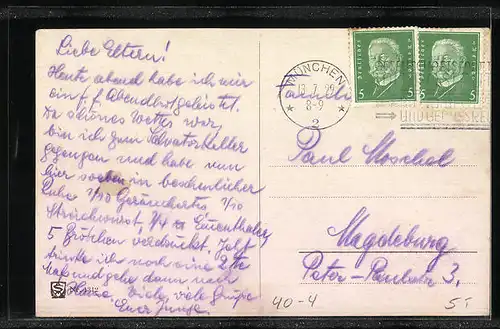 Liebe Eltern!
Heute abend habe ich mir
ein f. f. Abendbrot geleistet.
Da schönes Wetter war,
bin ich zum Salvatorkeller
gegangen und habe nun
hier soeben in beschaulicher
Ruhe 1/10 Geräuchertes 1/10
Streichwurst, 3/4
5 Brötchen verdrückt. Jetzt
trinke ich noch eine 2te
Maß und gehe dann nach
Hause. Viele viele Grüße
Euer Junge.
MÜNCHEN
13. 7. 29
8-9
2
5 5
5 5
Familie
Paul Moschel
Magdeburg
Peter-Paulstr 3.
40-4
5,-